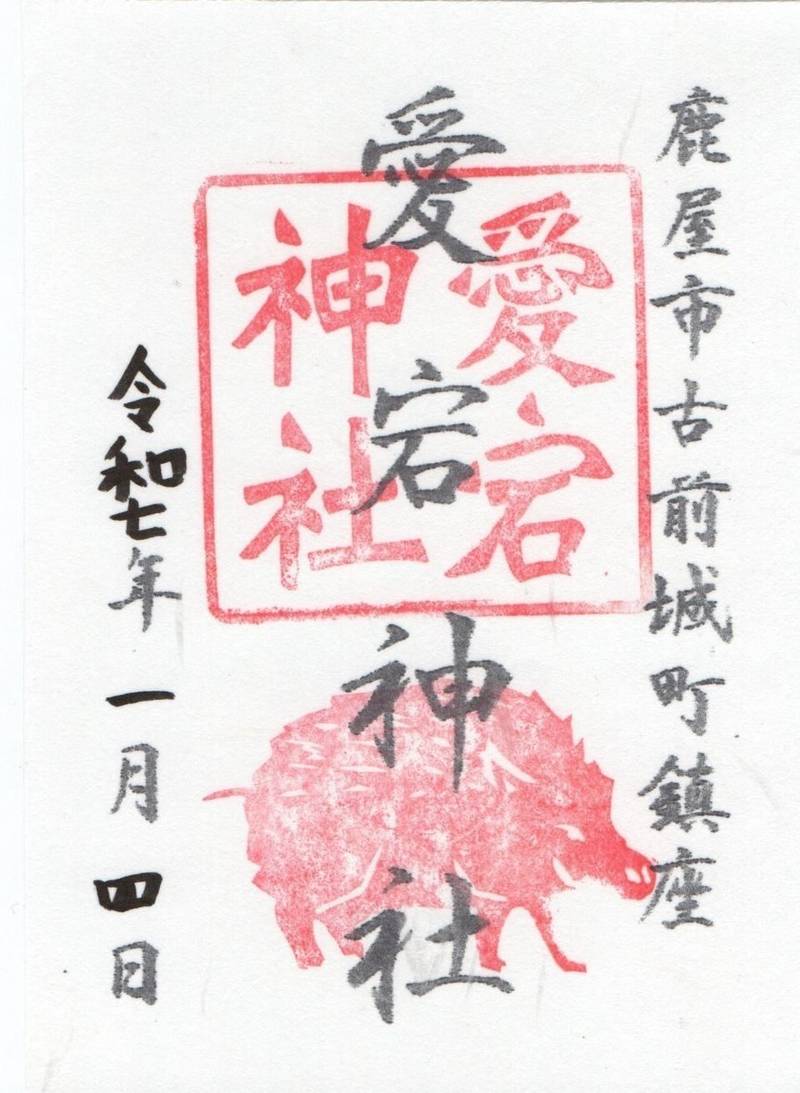 鹿屋市古前城町鎮座
愛宕神社
愛宕
神社
令和七年一月四日